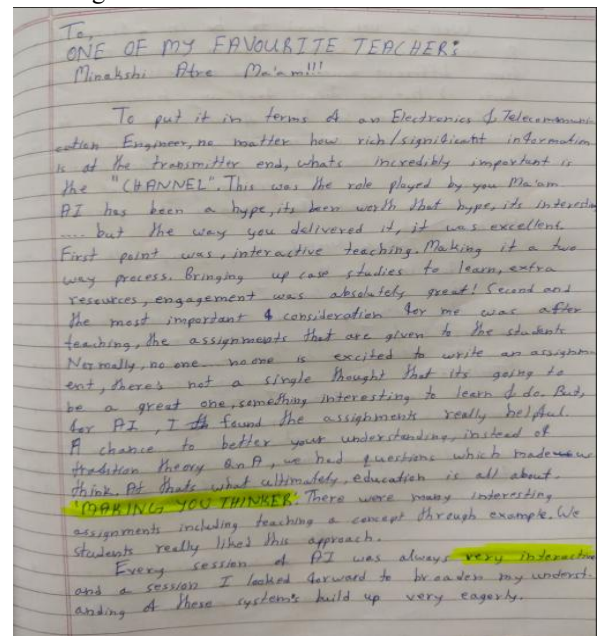 To,
ONE OF MY FAVOURITE TEACHER:
Minakshi Atre Ma'am!!!
To put it in terms of an Electronics & Telecommuni
cation Engineer, no matter how rich/significant information
is at the transmitter end, whats incredibly important is
the "CHANNEL". This was the role played by you Ma'am.
AI has been a hype, its been worth that hype, its interestin
.... but the way you delivered it, it was excellent.
First point was, interactive teaching. Making it a two
way process. Bringing up case studies to learn, extra
resources, engagement was absolutely great! Second and
the most important & consideration for me was after
teaching, the assignments that are given to the students
Normally, no one... no one is excited to write an assignm
ent, there's not a single thought that its going to
be a great one, something interesting to learn & do. But,
for AI, I found the assignments really helpful.
A chance to better your understanding, instead of
tradition theory QnA, we had questions which made us
think. At thats what ultimately, education is all about.
'MAKING YOU THINKER'. There were many interesting
assignments including teaching a concept through example. We
students really liked this approach.
Every session of AI was always very interactive
and a session I looked forward to broaden my underst-
anding of these system's build up very eagerly.